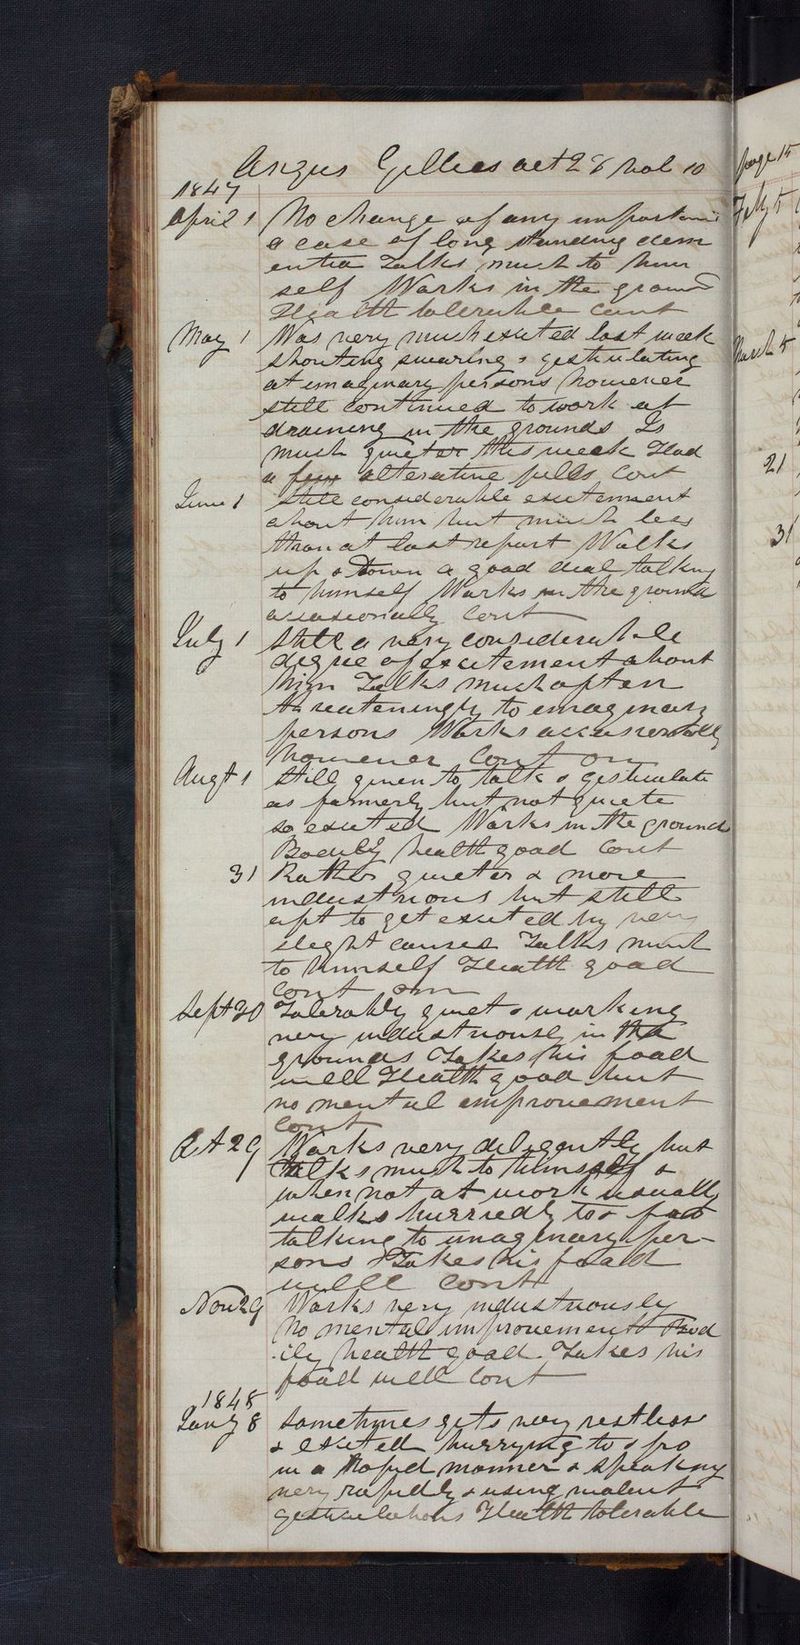 Angus Gillies aet 28 vol 10
1847
April 1 No change of any important
a case of long standing dem
entia Talks much to him
self Works in the ground
Health tolerable cont
May 1 Was very much excited last week
shouting swearing & gesticulating
at imaginary persons however
still continued to work at
draining in the grounds Is
much quieter this week Had
a few alterative pills cont
June 1 Still considerable excitement
about him but much less
than at last report Walks
up & down a good deal talking
to himself Works in the ground
occasionally cont
July 1 Still a very considerable
degree of excitement about
him Talks much often
threateningly to imaginary
persons Works occasionally
however cont
Augt 1 Still given to talk & gesticulate
as formerly but not quite
so excited Works in the grounds
Bodily health good cont
31 Rather quieter & more
industrious but still
apt to get excited by very
slight causes Talks much
to himself Health good
cont
Sept 30 Tolerably quiet & working
very industriously in the
grounds Takes his food
well Health good but
no mental improvement
cont
Oct 29 Works very diligently but
talks much to himself &
when not at work usually
walks hurriedly to & fro
talking to imaginary per-
sons Takes his food
well cont
Nov 29 Works very industriously
No mental improvement Bod
ily health good Takes his
food well cont
1848
Jany 8 Sometimes gets very restless
& excited hurrying to & fro
in a rapid manner & speaking
very rapidly & using violent
gesticulations Health tolerable
page 15
Feby 5
March 5
21
31